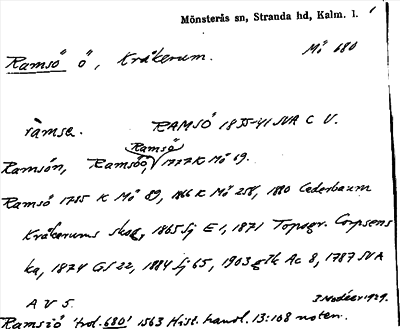 Mönsterås sn, Stranda hd, Kalm. l.
Ramsö ö, Kråkerum. Mö 680
ràmsə. RAMSÖ 1835-41 SNA C V.
Ramsö
Ramsön, Ramsöö, 1777 K Mö 69.
Ramsö 1755 K Mö 89, 1866 K Mö 258, 1880 Cederbaum
Kråkerums skog, 1865 Sj E1, 1871 Topogr. Corpsens
ka, 1874 GS 22, 1884 Sj 65, 1903 gIk Ac 8, 1787 SNA
A V 5. J. Nodéer 1929.
Ramsiö 'hol. 680' 1563 Hist. handl. 13:108 noten.